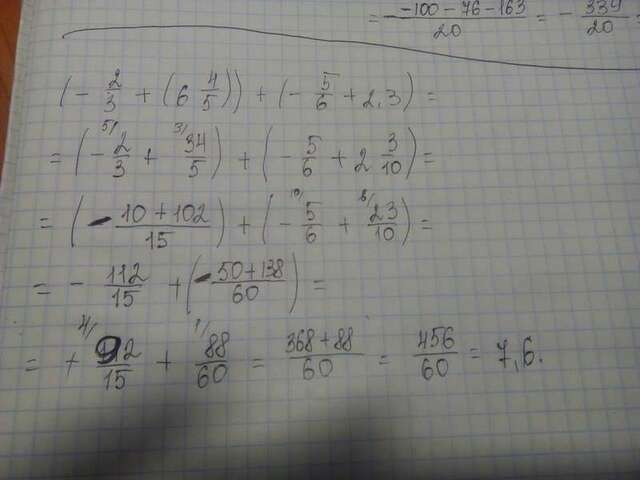 = - -100 - 76 - 163 / 20 = - 334 / 20 =
(- 2/3 + (6 4/5)) + (- 5/6 + 2,3) =
= (- 5/ 2/3 + 3/ 34/5) + (- 5/6 + 2 3/10) =
= (- 10 + 102 / 15) + (- 10/ 5/6 + 6/ 23/10) =
= - 112/15 + (- 50 + 138 / 60) =
= + 4/ 92/15 + 1/ 88/60 = 368 + 88 / 60 = 456/60 = 7,6.